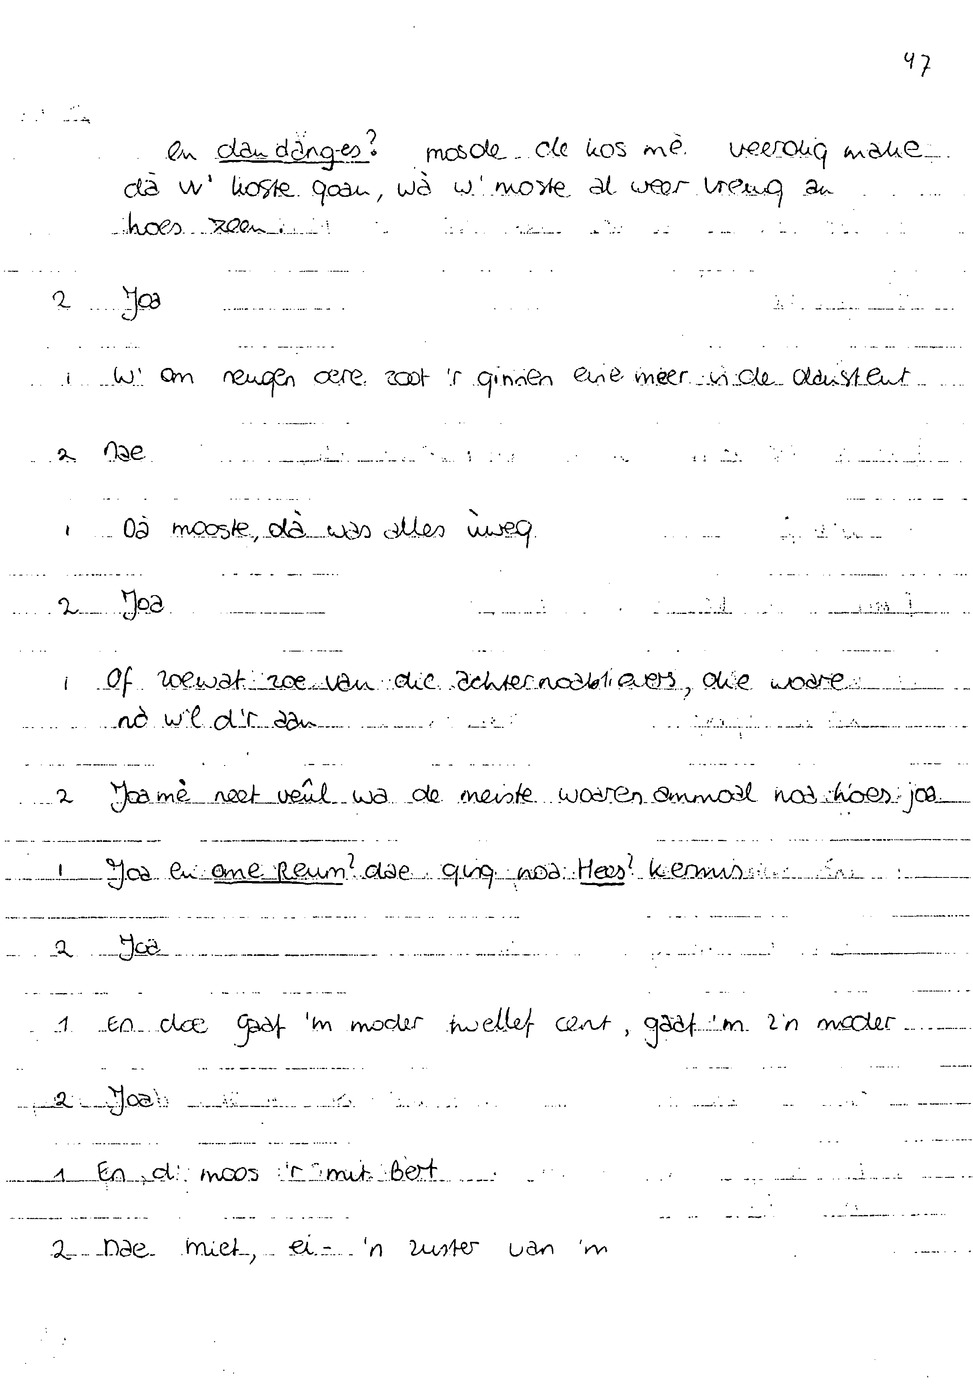 47
en dan dänges? mosde de kos mè veerdig make
dà w' koste goan, wà w' moste al weer vreug an
hoes zeen.
2 Joa
1 W' om neugen oere zoot 'r ginnen eine meer in de danstent
2 Nae
1 Dà mooste, dà was alles ìweg
2 Joa
1 Of zoewat zoe van die achternoablievers, die woare
nò wìl d'r aan
2 Joa mè neet veûl wa de meiste woaren ammoal noa hoes joa
1 Joa en ome Reum? dae ging noa Hees? kermis
2 Joa
1 En doe gaaf 'm moder twellef cent, gaaf 'm z'n moder
2 Joa
1 En d' moos 'r mit Bert
2 Nae miet, ei - 'n zuster van 'm